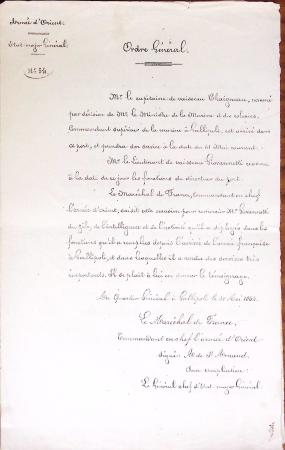 Armée d'Orient.
Etat-major Général.
Ordre Général.
Mr. le capitaine de vaisseau Chaigneau, nommé
par décision de Mr. le Ministre de la Marine et des colonies,
Commandant supérieur de la marine à Gallipoli, est arrivé dans
ce port, et prendra son service à la date du 21 Mai courant.
Mr. le Lieutenant de vaisseau Giovannetti cessera
à la date de ce jour les fonctions de directeur du port.
Le Maréchal de France, Commandant en chef
l'armée d'Orient, saisit cette occasion pour remercier Mr. Giovannetti
du zèle, de l'intelligence et de l'activité qu'il a déployés dans les
fonctions qu'il a remplies depuis l'arrivée de l'armée française
à Gallipoli, et dans lesquelles il a rendu des services très
importants. Il se plait à lui en donner le témoignage.
Au Quartier Général à Gallipoli le 20 Mai 1854.
Le Maréchal de France,
Commandant en chef l'armée d'Orient
Signé: A. de St. Arnaud.
Pour ampliation:
Le Général chef d'Etat-major Général.